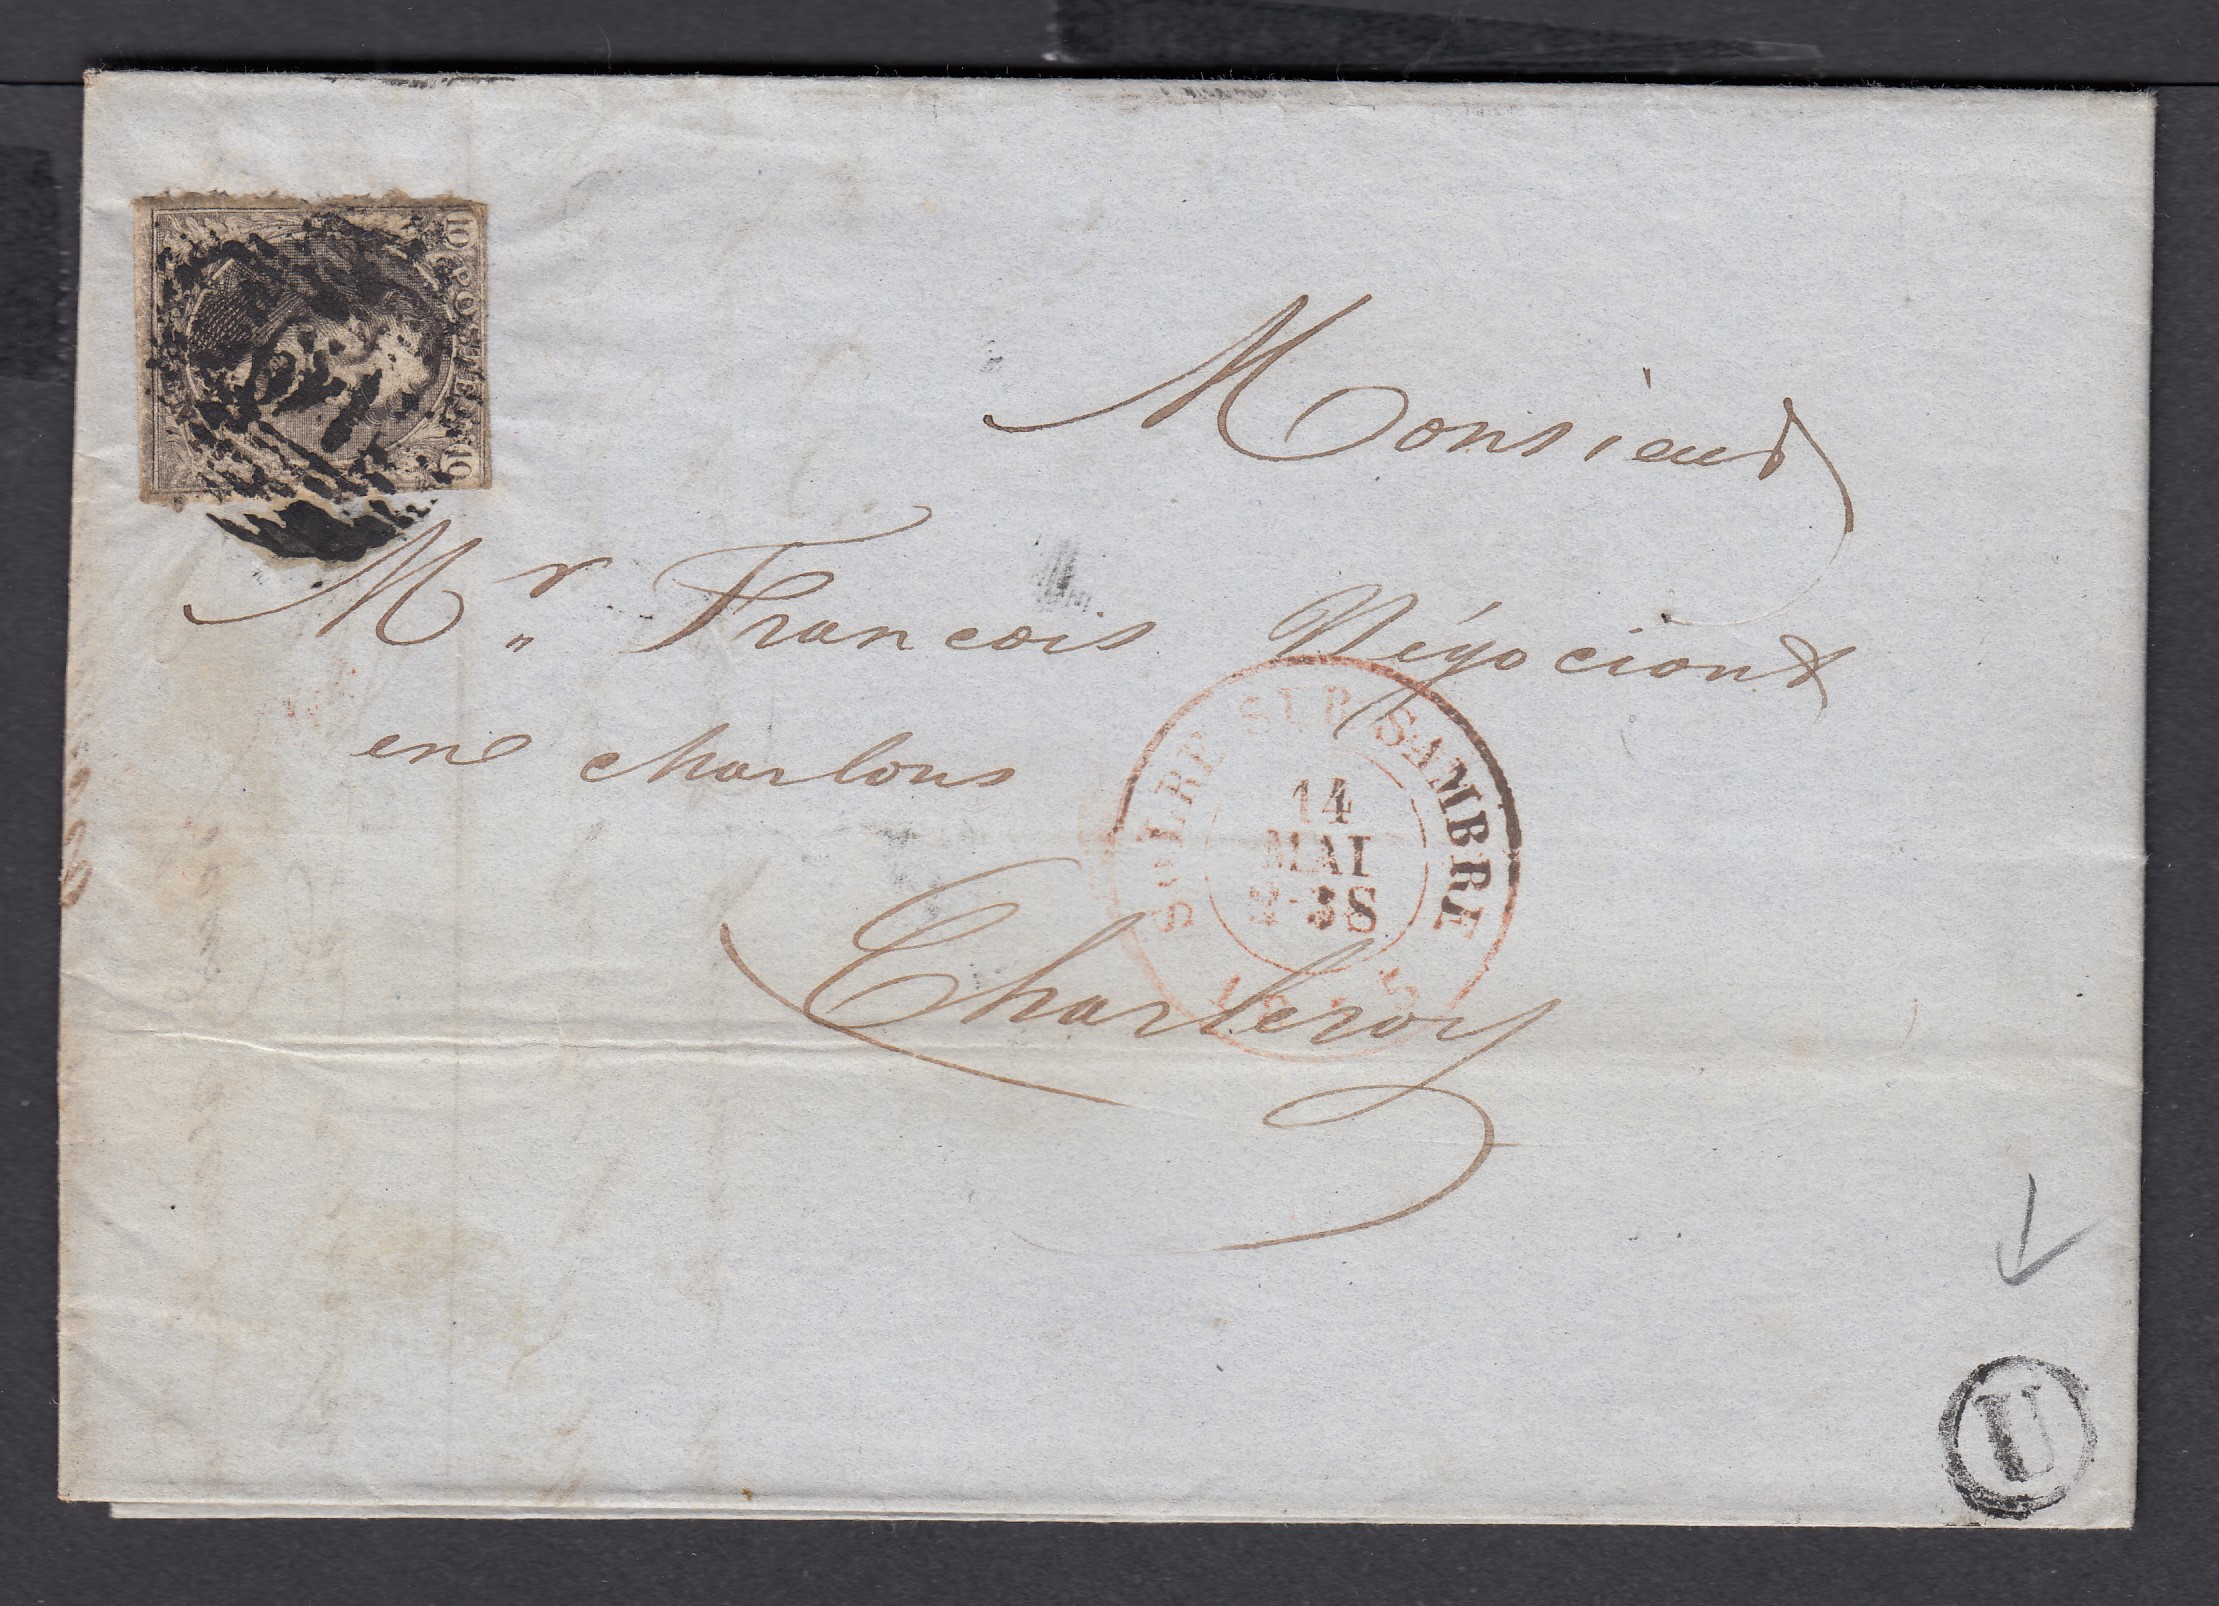 10 POSTES 10
Monsieur
Mr Francois Négociant
en charbons
Charleroy
SOLRE SUR SAMBRE
14
MAI
2-3S
U